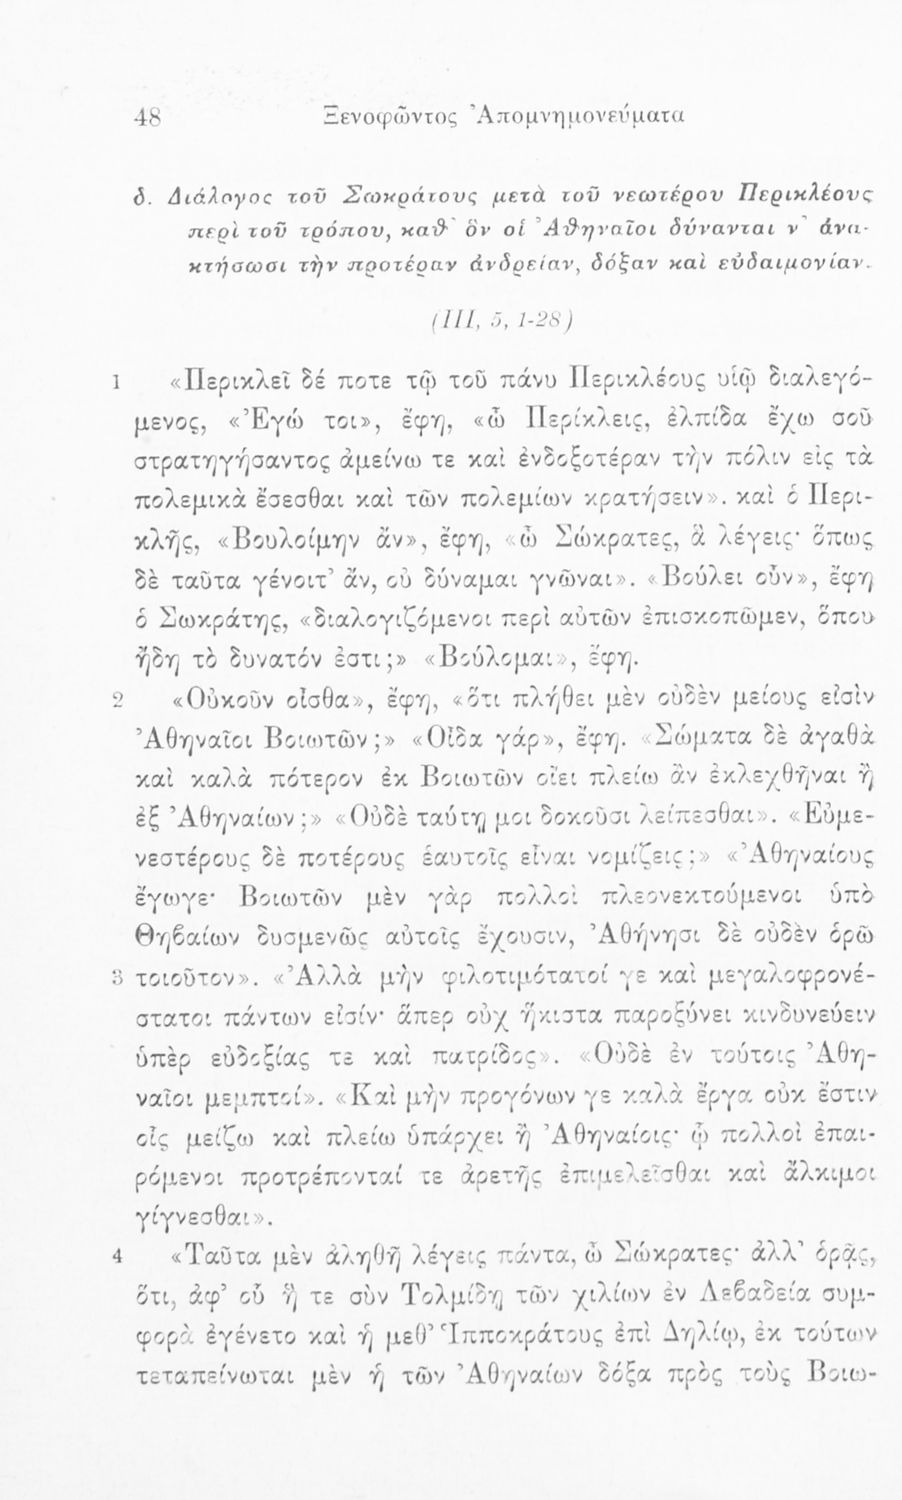 48 Ξενοφῶντος Ἀπομνημονεύματα
δ. Διάλογος τοῦ Σωκράτους μετὰ τοῦ νεωτέρου Περικλέους
περὶ τοῦ τρόπου, καθ' ὃν οἱ Ἀθηναῖοι δύνανται ν' ἀνα-
κτήσωσι τὴν προτέραν ἀνδρείαν, δόξαν καὶ εὐδαιμονίαν.
(III, 5, 1-28)
1 «Περικλεῖ δέ ποτε τῷ τοῦ πάνυ Περικλέους υἱῷ διαλεγό-
μενος, «Ἐγώ τοι», ἔφη, «ὦ Περίκλεις, ἐλπίδα ἔχω σοῦ
στρατηγήσαντος ἀμείνω τε καὶ ἐνδοξοτέραν τὴν πόλιν εἰς τὰ
πολεμικὰ ἔσεσθαι καὶ τῶν πολεμίων κρατήσειν». καὶ ὁ Περι-
κλῆς, «Βουλοίμην ἄν», ἔφη, «ὦ Σώκρατες, ἃ λέγεις· ὅπως
δὲ ταῦτα γένοιτ' ἄν, οὐ δύναμαι γνῶναι». «Βούλει οὖν», ἔφη
ὁ Σωκράτης, «διαλογιζόμενοι περὶ αὐτῶν ἐπισκοπῶμεν, ὅπου
ἤδη τὸ δυνατόν ἐστι;» «Βούλομαι», ἔφη.
2 «Οὐκοῦν οἶσθα», ἔφη, «ὅτι πλήθει μὲν οὐδὲν μείους εἰσὶν
Ἀθηναῖοι Βοιωτῶν;» «Οἶδα γάρ», ἔφη. «Σώματα δὲ ἀγαθὰ
καὶ καλὰ πότερον ἐκ Βοιωτῶν οἴει πλείω ἂν ἐκλεχθῆναι ἢ
ἐξ Ἀθηναίων;» «Οὐδὲ ταύτῃ μοι δοκοῦσι λείπεσθαι». «Εὐμε-
νεστέρους δὲ ποτέρους ἑαυτοῖς εἶναι νομίζεις;» «Ἀθηναίους
ἔγωγε· Βοιωτῶν μὲν γὰρ πολλοὶ πλεονεκτούμενοι ὑπὸ
Θηβαίων δυσμενῶς αὐτοῖς ἔχουσιν, Ἀθήνησι δὲ οὐδὲν ὁρῶ
3 τοιοῦτον». «Ἀλλὰ μὴν φιλοτιμότατοί γε καὶ μεγαλοφρονέ-
στατοι πάντων εἰσίν· ἅπερ οὐχ ἥκιστα παροξύνει κινδυνεύειν
ὑπὲρ εὐδοξίας τε καὶ πατρίδος». «Οὐδὲ ἐν τούτοις Ἀθη-
ναῖοι μεμπτοί». «Καὶ μὴν προγόνων γε καλὰ ἔργα οὐκ ἔστιν
οἷς μείζω καὶ πλείω ὑπάρχει ἢ Ἀθηναίοις· ᾧ πολλοὶ ἐπαι-
ρόμενοι προτρέπονταί τε ἀρετῆς ἐπιμελεῖσθαι καὶ ἄλκιμοι
γίγνεσθαι».
4 «Ταῦτα μὲν ἀληθῆ λέγεις πάντα, ὦ Σώκρατες· ἀλλ' ὁρᾷς,
ὅτι, ἀφ' οὗ ἥ τε σὺν Τολμίδῃ τῶν χιλίων ἐν Λεβαδείᾳ συμ-
φορὰ ἐγένετο καὶ ἡ μεθ' Ἱπποκράτους ἐπὶ Δηλίῳ, ἐκ τούτων
τεταπείνωται μὲν ἡ τῶν Ἀθηναίων δόξα πρὸς τοὺς Βοιω-